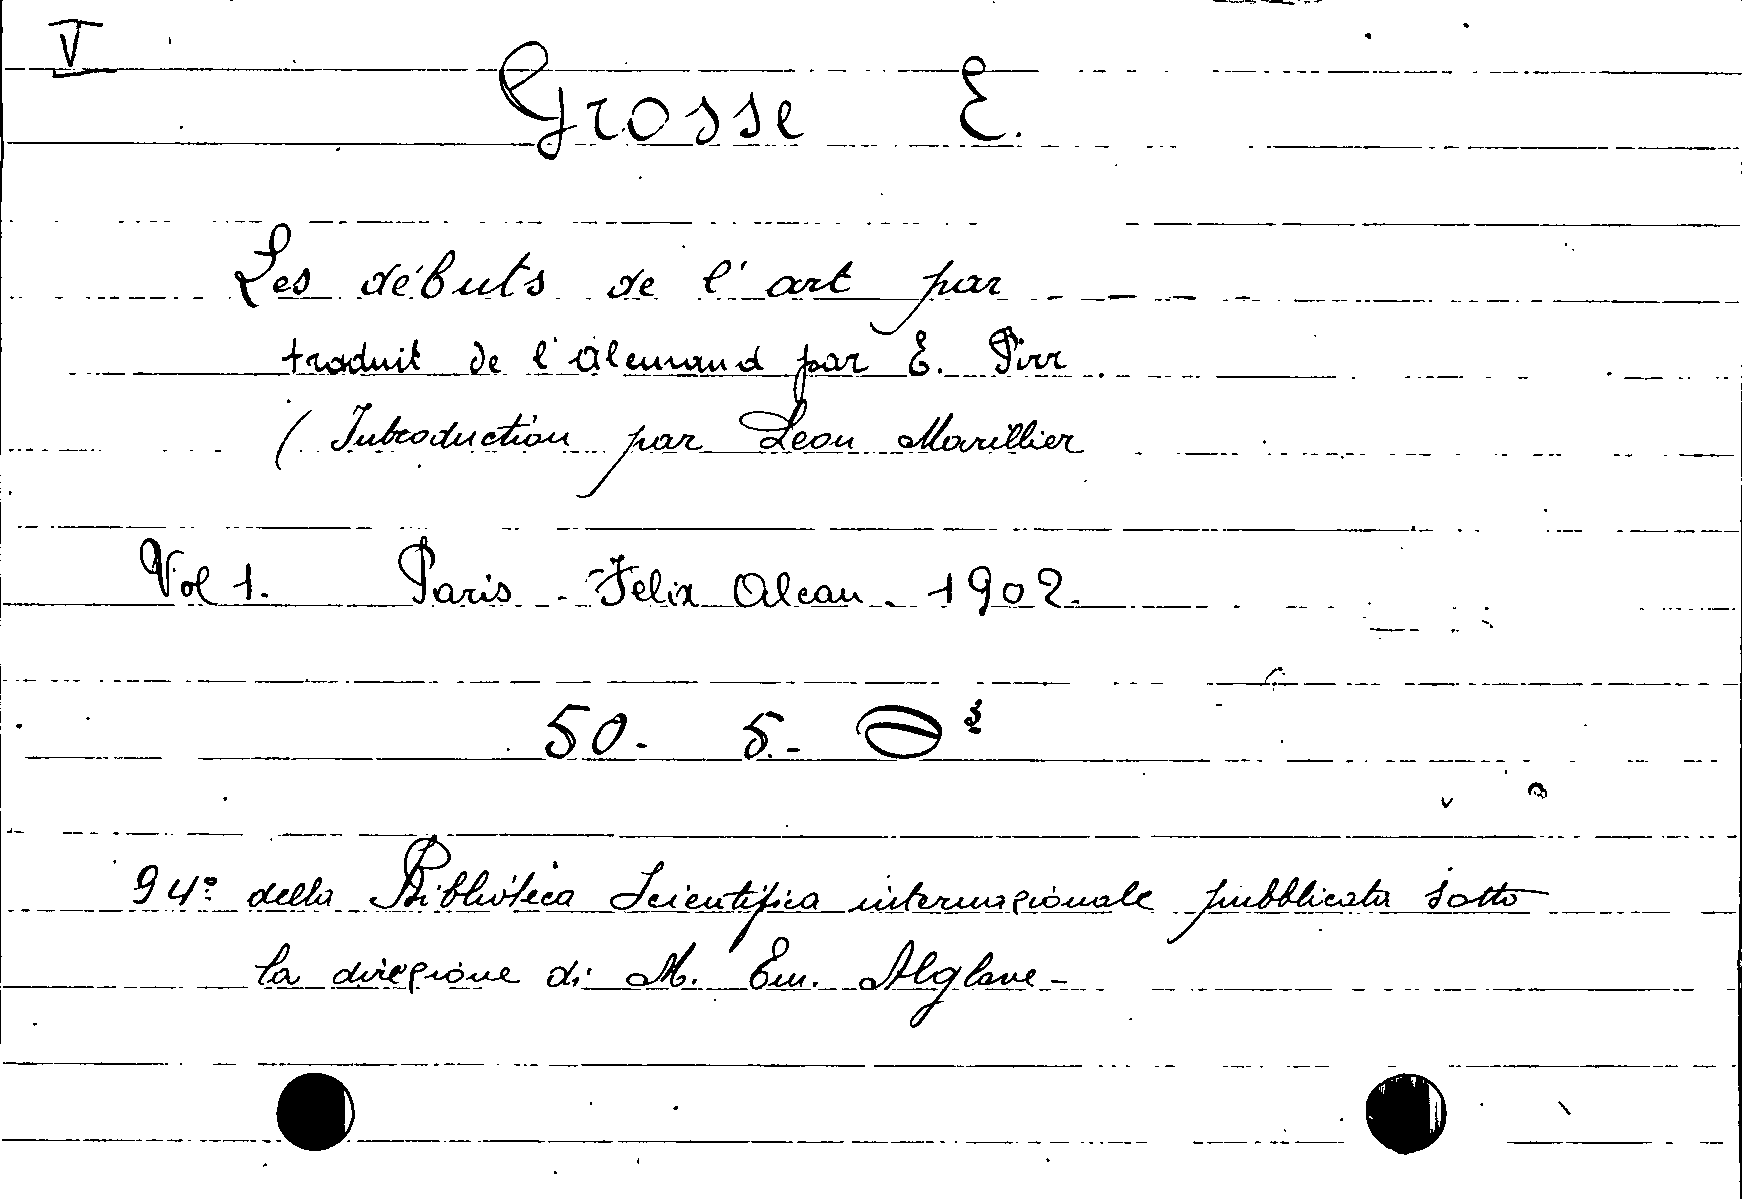 V
Grosse E.
Les débuts de l'art par
traduit de l'alemand par E. Pirr.
( Introduction par Leon Marillier
Vol 1. Paris - Felix Alcan. 1902.
50. 5.- 3
94° della Biblioteca Scientifica internazionale pubblicata sotto
la direzione di M. Em. Alglave -